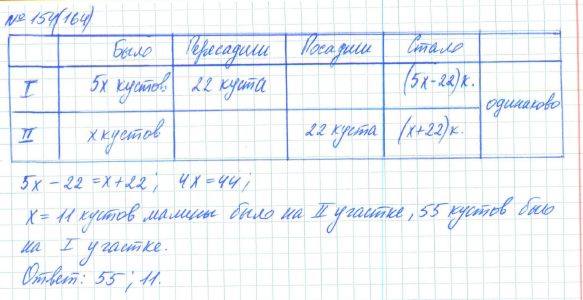 № 154(164)
Было Пересадили Посадили Стало
I 5x кустов 22 куста (5x-22)к.
одинаково
II x кустов 22 куста (x+22)к.
5x-22=x+22; 4x=44;
x=11 кустов малины было на II участке, 55 кустов было
на I участке.
Ответ: 55; 11.